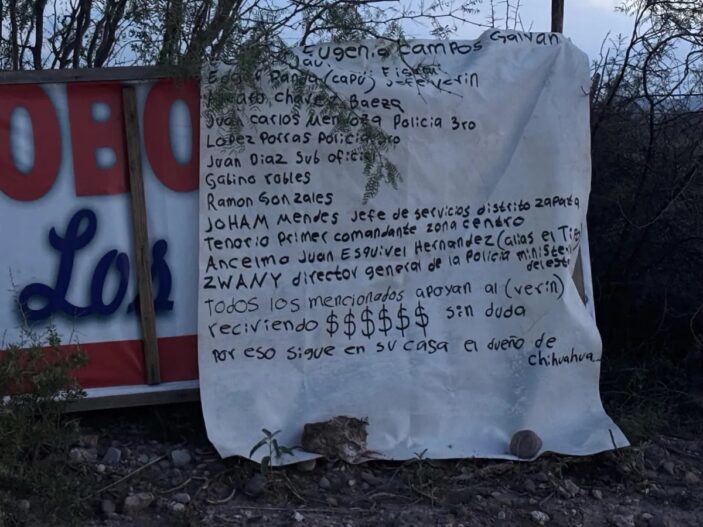 OBO
Los
Eugenia Campos Galvan
Javi Fierro
Panda (capu) Jefe verin
Chavez Baeza
Juan Carlos Mendoza Policia 3ro
Lopez Porras Policia 3ro
Juan Diaz Sub oficial
Gabino robles
Ramon Gonzales
JOHAM Mendes Jefe de servicios distrito zapata
Tenorio Primer comandante zona centro
Ancelmo Juan Esquivel Hernandez (alias el
ZWANY director general de la policia
del est
Todos los mencionados apoyan al (verin)
reciviendo $$$$$$ sin duda
Por eso sigue en su casa el dueño de
chihuahua...